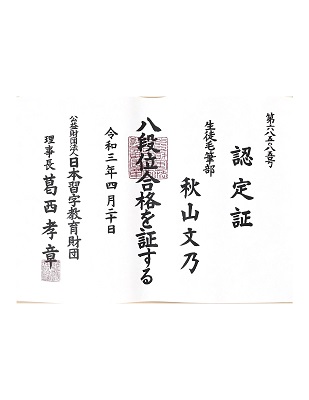 第六八五〇八五号
認定証
生徒毛筆部
秋山文乃
八段位合格を証する
令和三年四月二十日
公益財団法人日本習字教育財団
理事長 葛西孝章